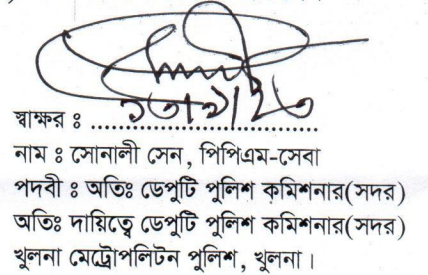 স্বাক্ষর ঃ ..............................
নাম ঃ সোনালী সেন, পিপিএম-সেবা
পদবী ঃ অতিঃ ডেপুটি পুলিশ কমিশনার(সদর)
অতিঃ দায়িত্বে ডেপুটি পুলিশ কমিশনার(সদর)
খুলনা মেট্রোপলিটন পুলিশ, খুলনা।